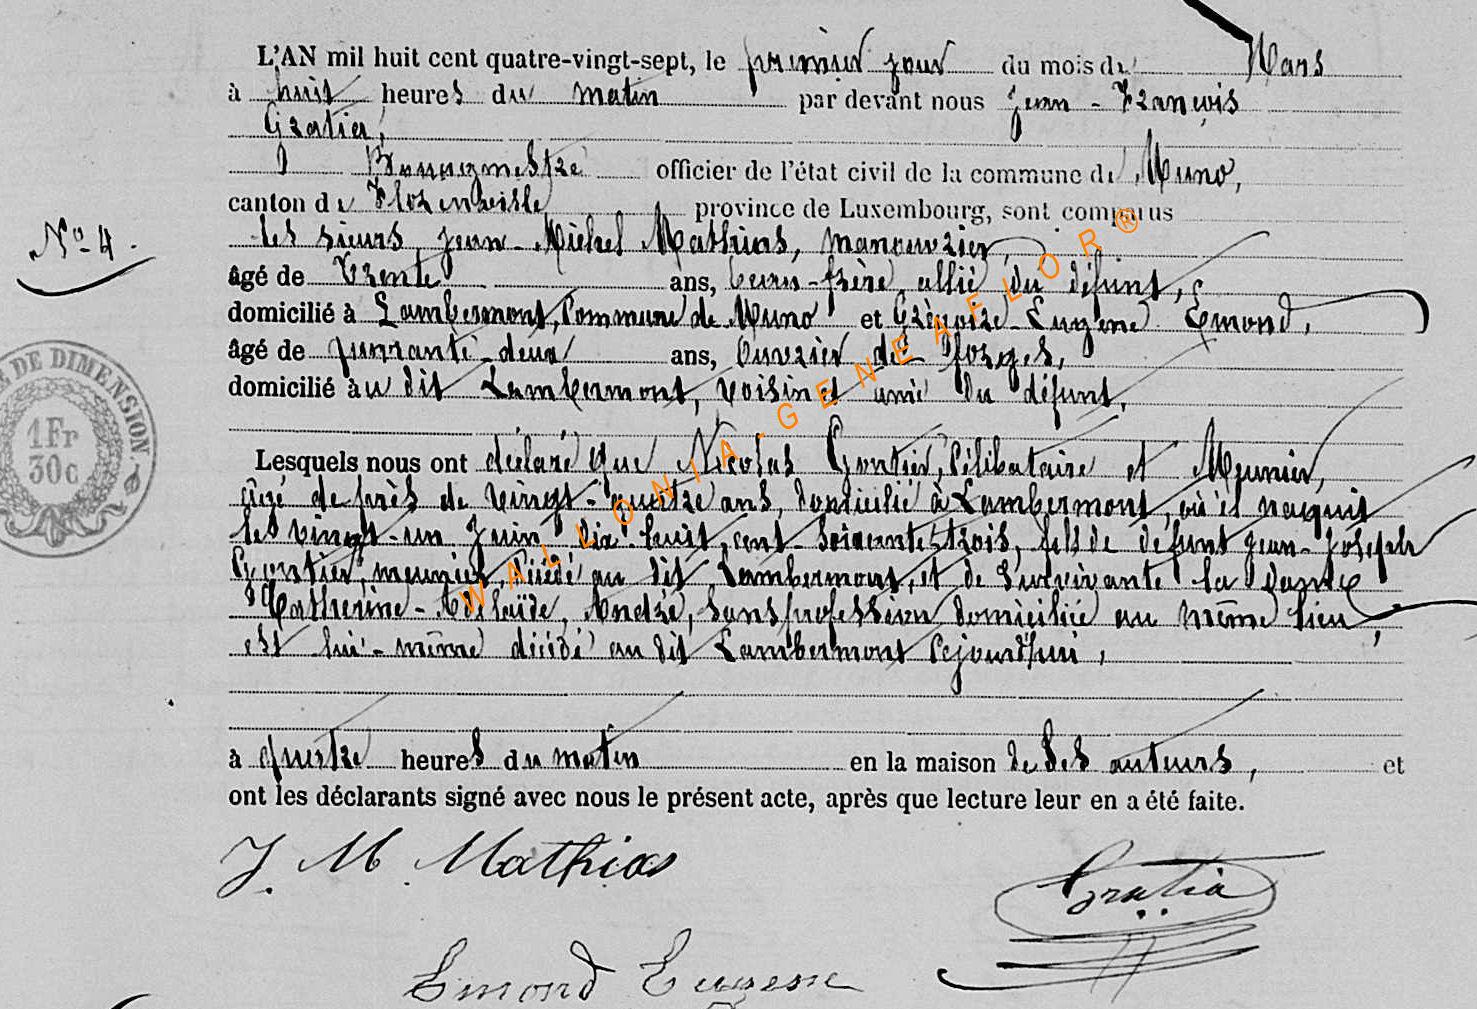 L'AN mil huit cent quatre-vingt-sept, le premier jour du mois de Mars
à huit heures du matin par devant nous Jean-François
Gratia,
Bourgmestre officier de l'état civil de la commune de Muno,
canton de Florenville province de Luxembourg, sont comparus
Nº 4.
les sieurs Jean-Michel Mathias, manouvrier,
âgé de Trente ans, beau-frère allié du défunt,
domicilié à Lambermont, Commune de Muno et Grégoire-Eugène Emond,
âgé de quarante-deux ans, Ouvrier de forges,
domicilié au dit Lambermont, voisin et ami du défunt,
Lesquels nous ont déclaré que Nicolas Célibataire et Meunier,
âgé de près de vingt-quatre ans, domicilié à Lambermont, où il naquit
le vingt-un Juin dix-huit-cent-soixante-trois, fils de défunt Jean-Joseph
meunier, décédé au dit Lambermont, et de survivante la dame
Catherine-Adélaïde, André, sans profession domiciliée au même lieu,
est lui-même décédé au dit Lambermont cejourd'hui,
à quatre heures du matin en la maison de ses auteurs, et
ont les déclarants signé avec nous le présent acte, après que lecture leur en a été faite.
J. M. Mathias
Gratia
Emond Eugène
DE DIMENSION
1Fr
30c
WALLONIA-GENEAFLOR®